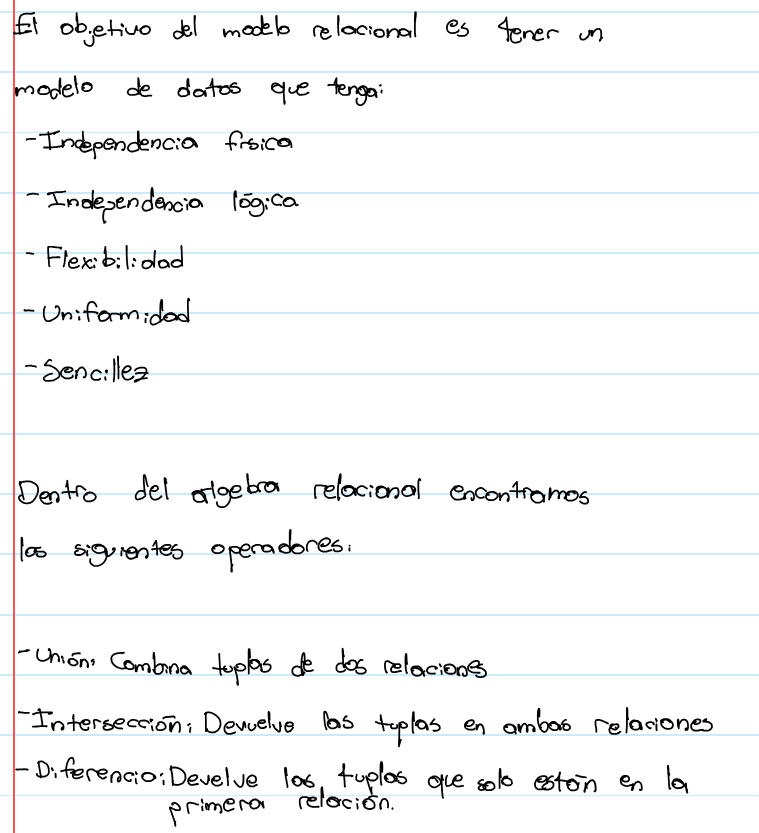 El objetivo del modelo relacional es tener un
modelo de datos que tenga:
- Independencia física
- Independencia lógica
- Flexibilidad
- Uniformidad
- Sencillez
Dentro del algebra relacional encontramos
los siguientes operadores:
- Unión: Combina tuplas de dos relaciones
- Intersección: Devuelve las tuplas en ambas relaciones
- Diferencia: Develve las tuplas que solo están en la
primera relación.